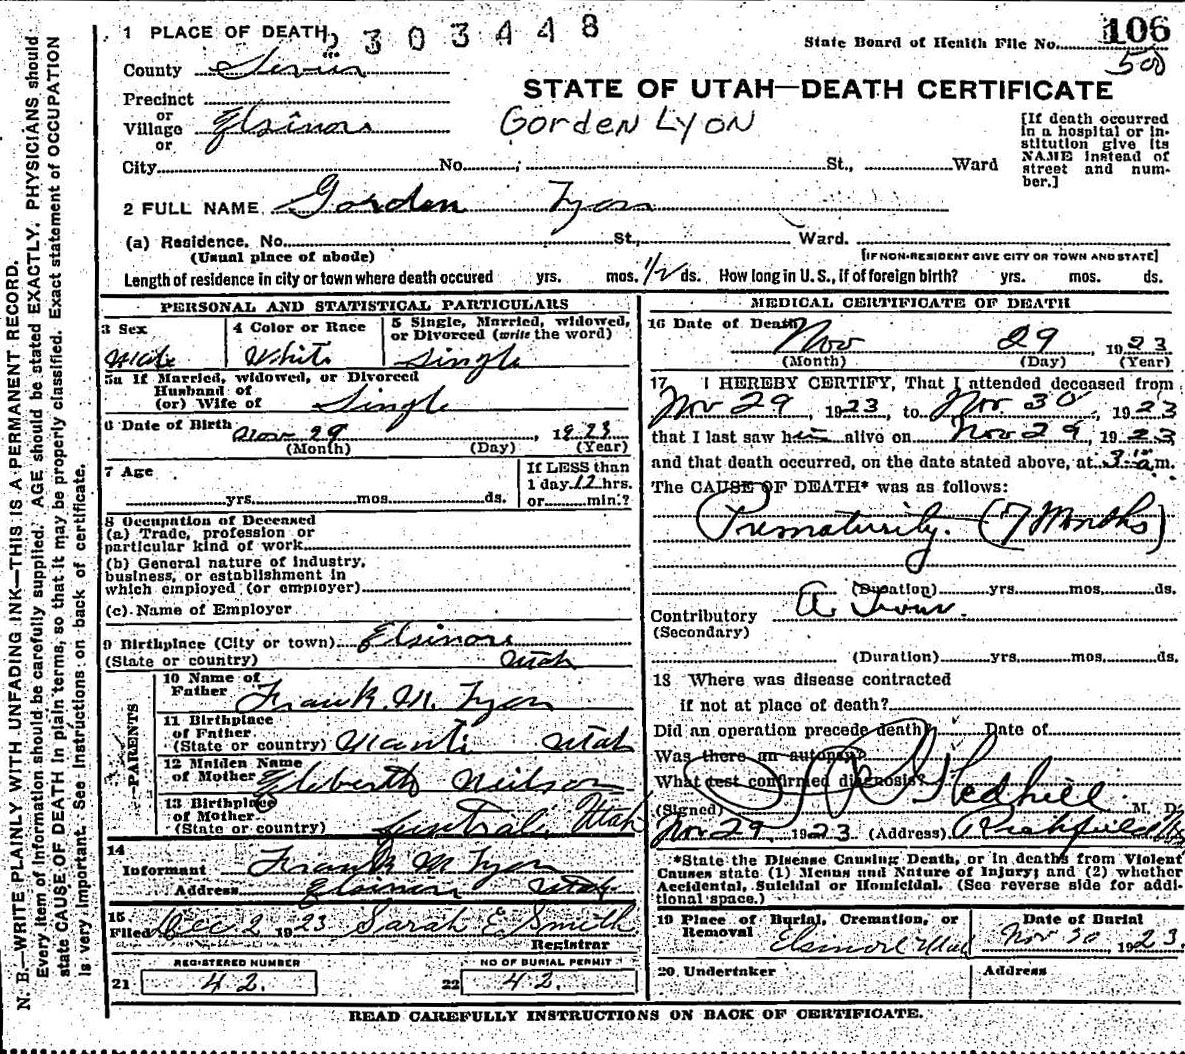 1 PLACE OF DEATH
2303448
State Board of Health File No. 106
500
County Sevier
STATE OF UTAH—DEATH CERTIFICATE
Precinct
or
Village Elsinore
or
Gorden Lyon
[If death occurred in a hospital or institution give its NAME instead of street and number.]
City No. St., Ward
2 FULL NAME Gordon Lyon
(a) Residence. No. St., Ward.
(Usual place of abode) [IF NON-RESIDENT GIVE CITY OR TOWN AND STATE]
Length of residence in city or town where death occured yrs. mos. 1/2 ds. How long in U. S., if of foreign birth? yrs. mos. ds.
PERSONAL AND STATISTICAL PARTICULARS
3 Sex
Male
4 Color or Race
White
5 Single, Married, widowed,
or Divorced (write the word)
Single
5a If Married, widowed, or Divorced
Husband of
(or) Wife of Single
6 Date of Birth Nov 29, 1923
(Month) (Day) (Year)
7 Age
yrs. mos. ds.
If LESS than
1 day 12 hrs.
or min.?
8 Occupation of Deceased
(a) Trade, profession or
particular kind of work
(b) General nature of industry,
business, or establishment in
which employed (or employer)
(c) Name of Employer
9 Birthplace (City or town) Elsinore
(State or country) Utah
PARENTS
10 Name of
Father Frank M. Lyon
11 Birthplace
of Father
(State or country) Manti Utah
12 Maiden Name
of Mother Neilson
13 Birthplace
of Mother
(State or country) Utah
14
Informant Frank M Lyon
Address Elsinore Utah
15
Filed Dec 2 1923 Sarah E. Smith
Registrar
REGISTERED NUMBER NO OF BURIAL PERMIT
21 42. 22 42.
MEDICAL CERTIFICATE OF DEATH
16 Date of Death
Nov 29 1923
(Month) (Day) (Year)
17 I HEREBY CERTIFY, That I attended deceased from
Nov 29, 1923, to Nov. 30, 1923
that I last saw him alive on Nov 29, 1923
and that death occurred, on the date stated above, at 3 a m.
The CAUSE OF DEATH* was as follows:
Prematurity. (7 Months)
(Duration) yrs. mos. ds.
Contributory
(Secondary)
(Duration) yrs. mos. ds.
18 Where was disease contracted
if not at place of death?
Did an operation precede death? Date of
Was there an autopsy?
What test confirmed diagnosis?
(Signed) Gledhill M. D.
Nov 29 1923 (Address) Richfield
*State the Disease Causing Death, or in deaths from Violent
Causes state (1) Means and Nature of Injury; and (2) whether
Accidental, Suicidal or Homicidal. (See reverse side for addi-
tional space.)
19 Place of Burial, Cremation, or
Removal Elsinore Utah
Date of Burial
Nov 30, 1923.
20 Undertaker Address
READ CAREFULLY INSTRUCTIONS ON BACK OF CERTIFICATE.
N. B.—WRITE PLAINLY WITH UNFADING INK—THIS IS A PERMANENT RECORD.
Every item of information should be carefully supplied. AGE should be stated EXACTLY. PHYSICIANS should
state CAUSE OF DEATH in plain terms, so that it may be properly classified. Exact statement of OCCUPATION
is very important. See instructions on back of certificate.